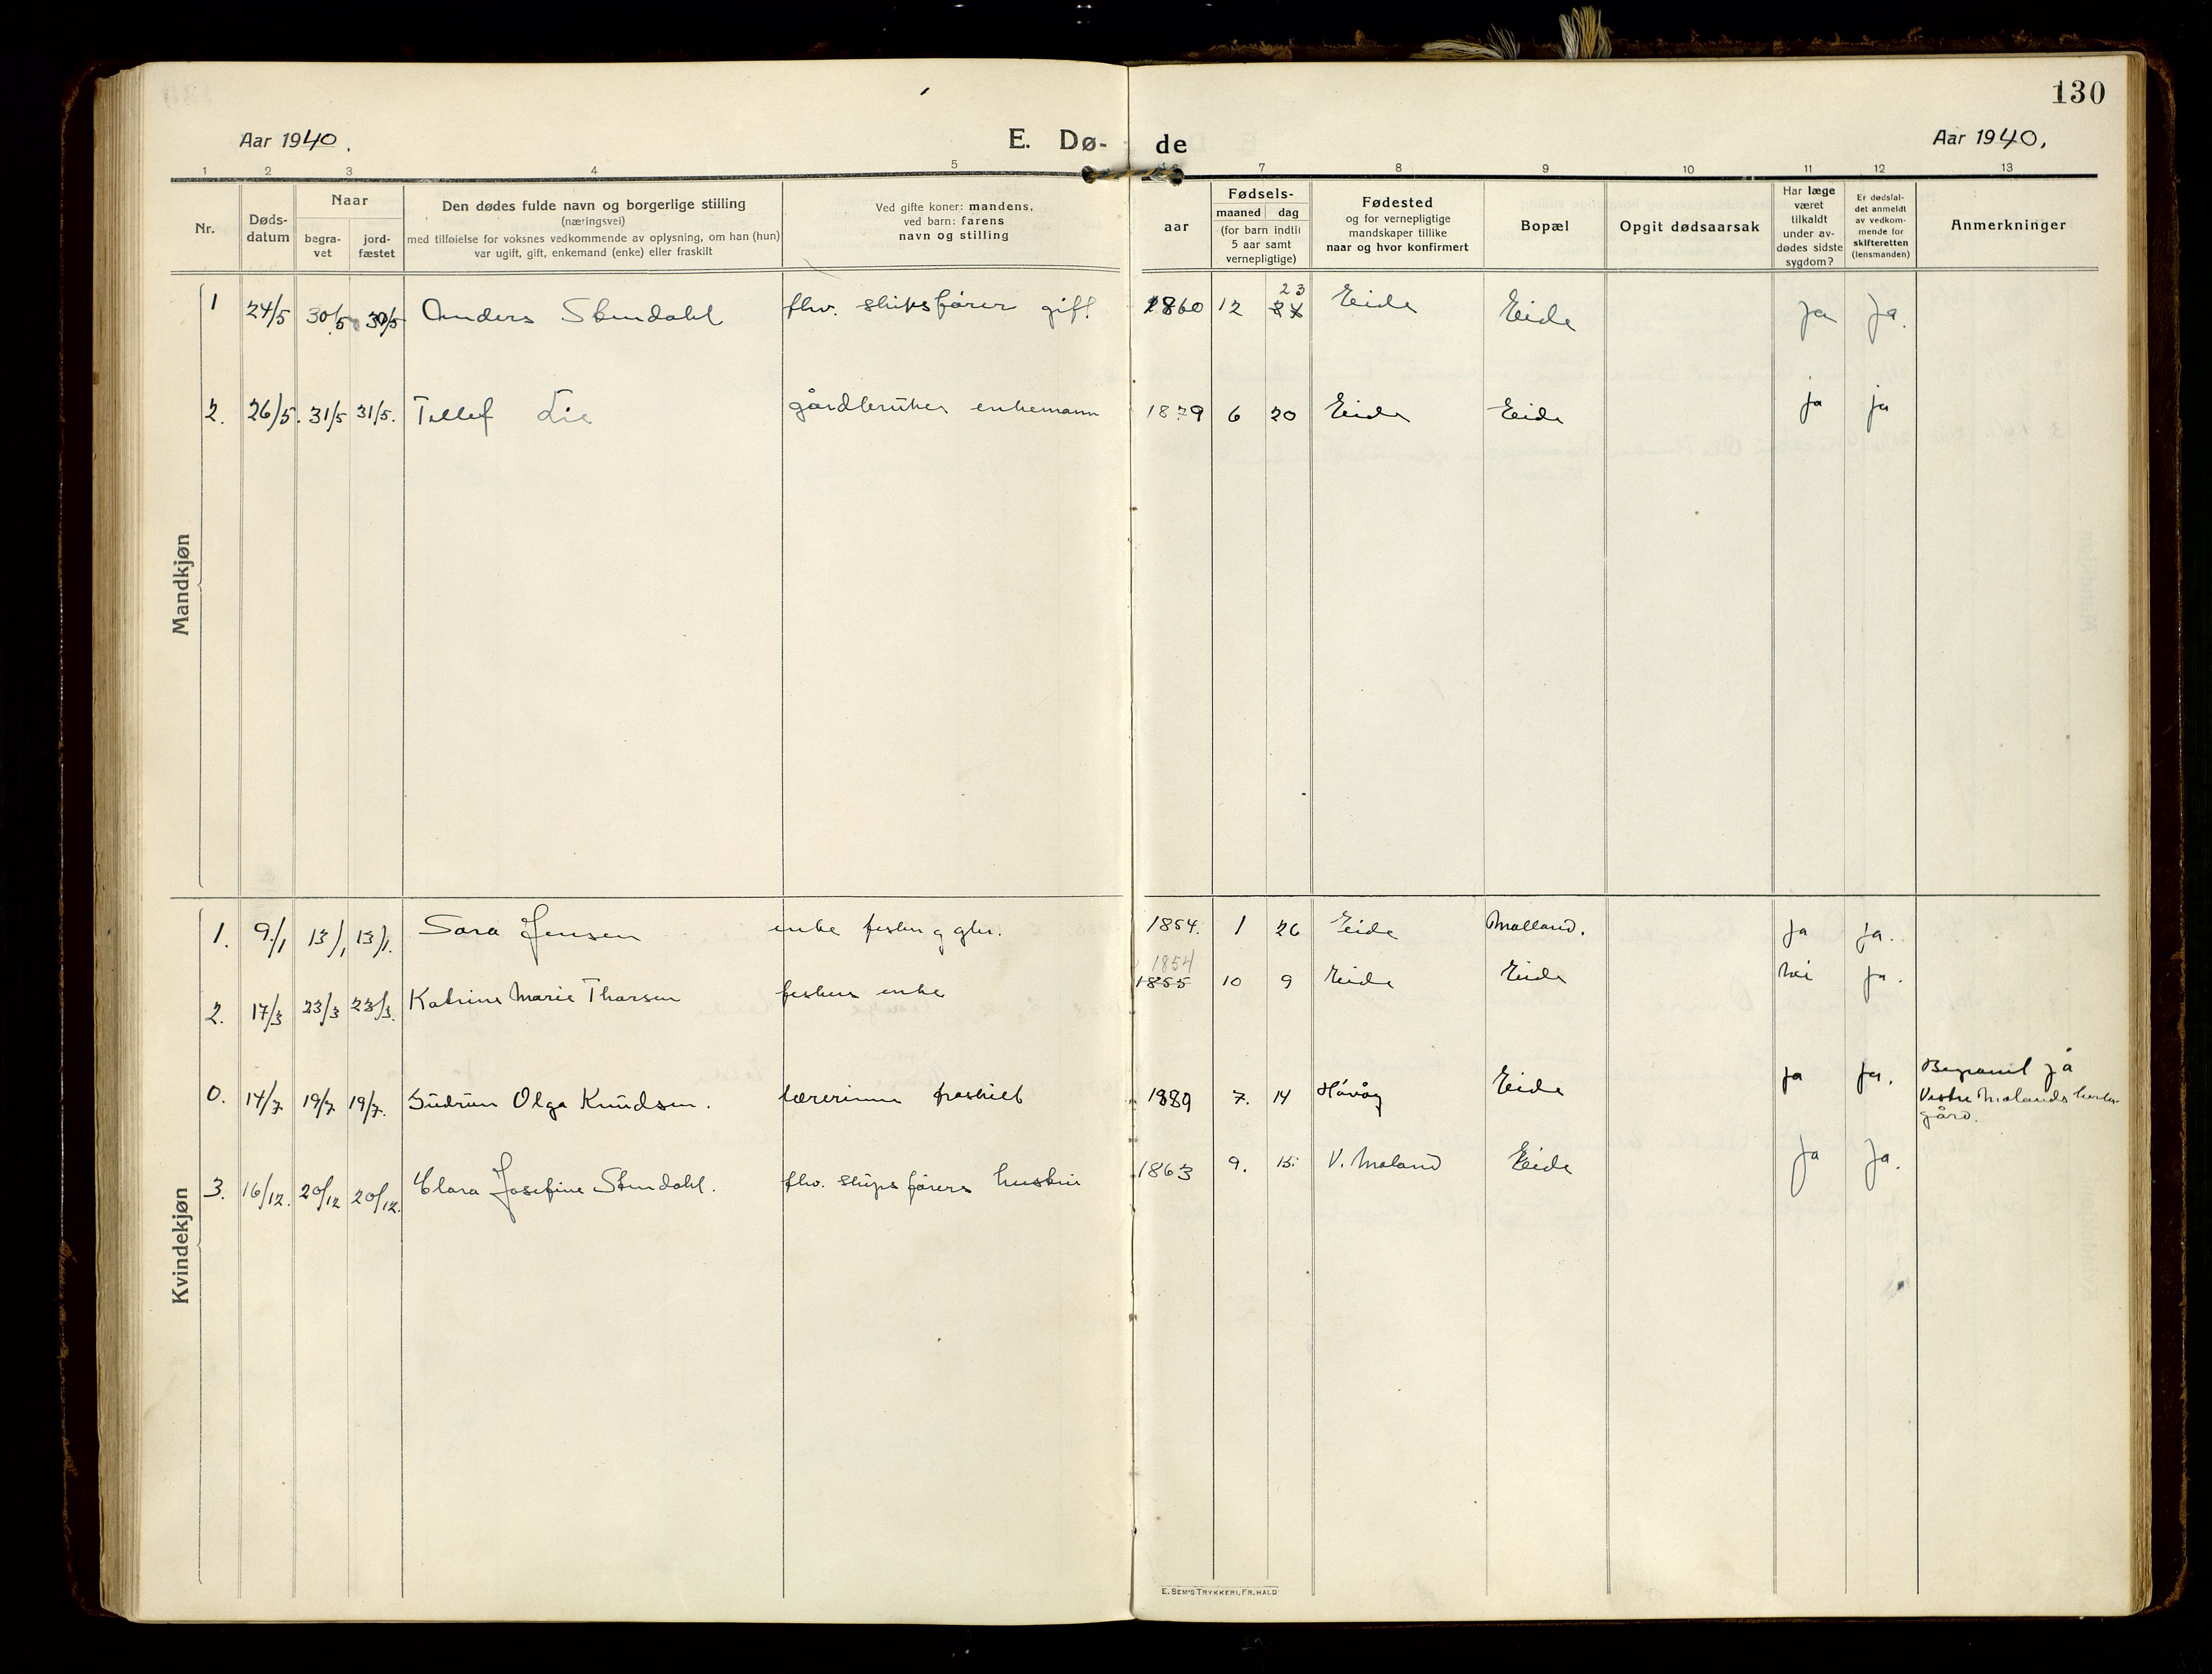 130
Aar 1940.
E. Dø-
de
Aar 1940.
1 2 3 4 5 6 7 8 9 10 11 12 13
Nr.
Døds-
datum
Naar
begra-
vet
jord-
fæstet
Den dødes fulde navn og borgerlige stilling
(næringsvei)
med tilføielse for voksnes vedkommende av oplysning, om han (hun)
var ugift, gift, enkemand (enke) eller fraskilt
Ved gifte koner: mandens,
ved barn: farens
navn og stilling
Fødsels-
aar
maaned dag
(for barn indtil
5 aar samt
vernepligtige)
Fødested
og for vernepligtige
mandskaper tillike
naar og hvor konfirmert
Bopæl
Opgit dødsaarsak
Har læge
været
tilkaldt
under av-
dødes sidste
sygdom?
Er dødsfal-
det anmeldt
av vedkom-
mende for
skifteretten
(lensmanden)
Anmerkninger
Mandkjøn
23
1 24/5 30/5 30/5 Anders Stendahl fhv. skipsfører gift 1860 12 24 Eide Eide Ja Ja.
2. 26/5. 31/5 31/5. Tellef Lie gårdbruker enkemann 1879 6 20 Eide Eide ja ja
Kvindekjøn
1. 9/1 13/1 13/1. Sara Jensen enke 1854. 1 26 Eide Molland. ja ja.
1854
2. 17/3 23/3 23/3. Katrine Marie Thorsen fiskers enke 1855 10 9 Eide Eide nei ja.
0. 14/7 19/7 19/7. Gudrun Olga Knudsen. lærerinne fraskilt 1889 7. 14 Høvåg Eide ja ja. Begravet på
Vestre Molands kirke-
gård.
3. 16/12. 20/12 20/12. Clara Josefine Stendahl. fhv. skipsførers hustru 1863 9. 15. V. Moland Eide Ja Ja.
E. SEM'S TRYKKERI, FR.HALD